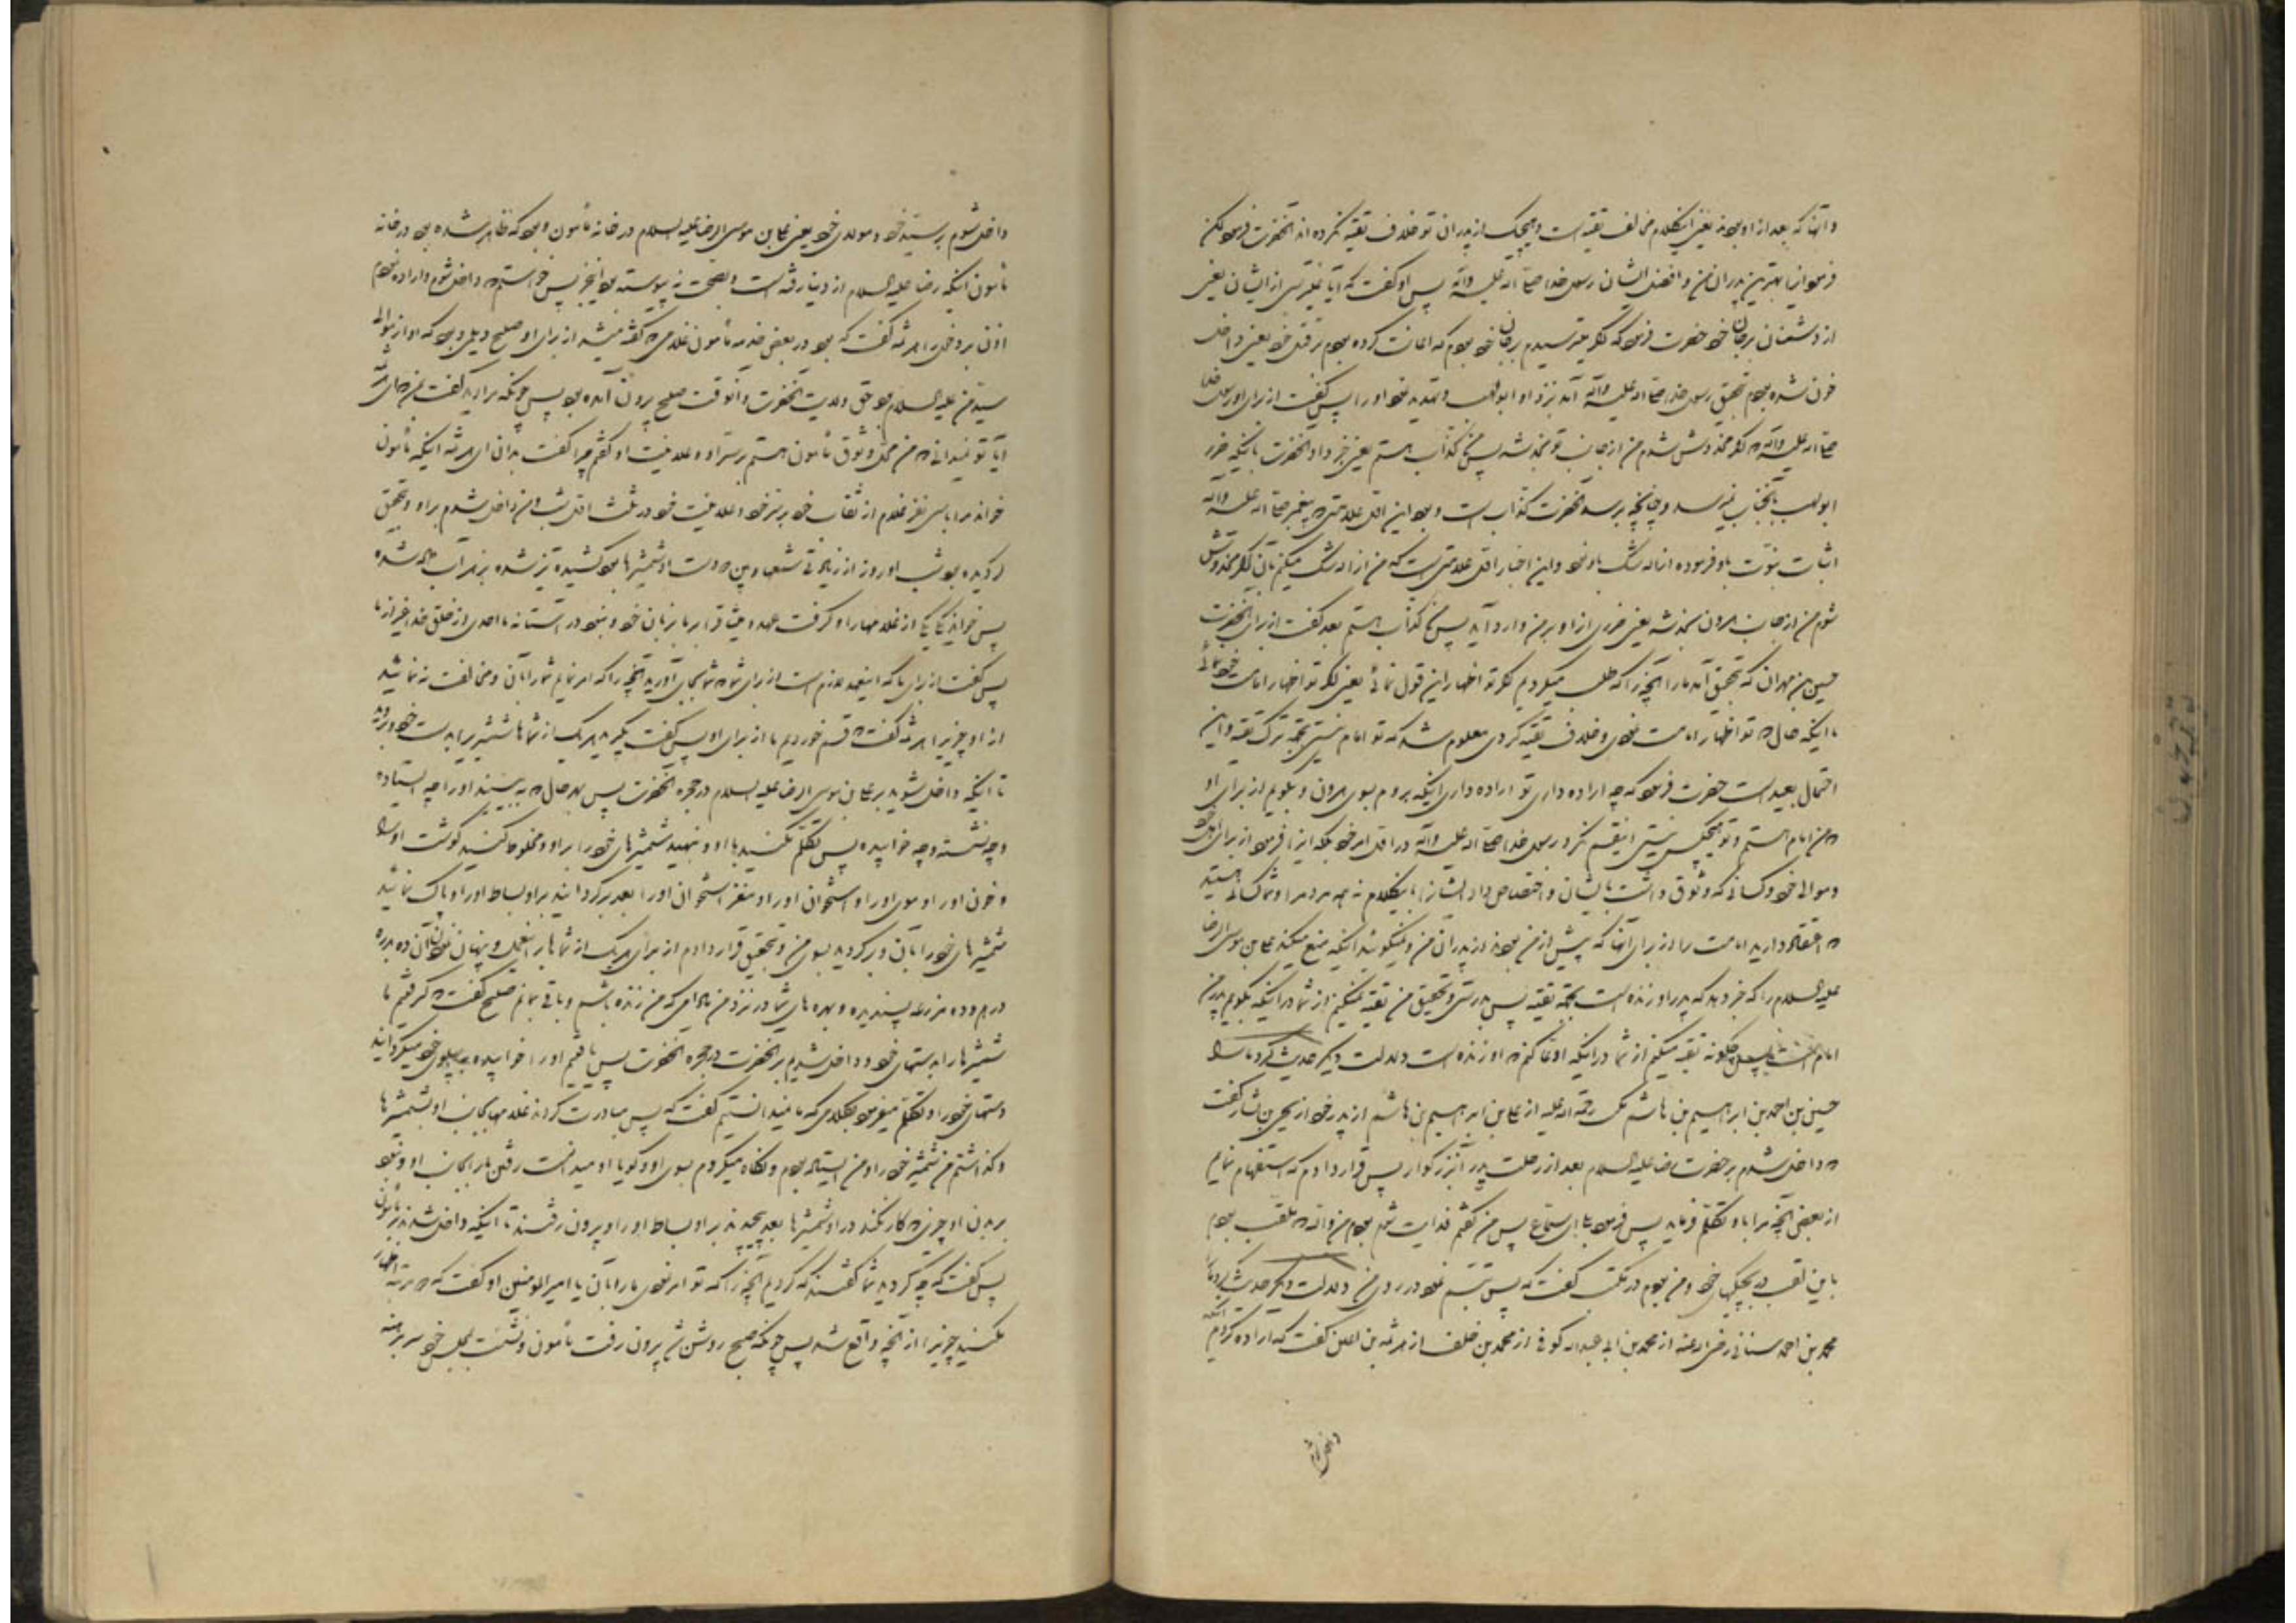 وآنها که بعد از او بودند یعنی اینکلام مخالف تقیه است وهیچیک از پدران تو خلاف تقیه نکرده اند آنحضرت فرمود لکن
فرمود از بهترین پدران من وافضل ایشان رسول خدا صلی الله علیه وآله پس او گفت که آیا نمیترسی از ایشان یعنی
از دشمنان برجان خود حضرت فرمود که اگر میترسیدم برجان خود بودم که اعانت کرده بودم بر قتل خود یعنی داخل
خون شده بودم بتحقیق رسول خدا صلی الله علیه وآله آمد نزد او ابولهب وتهدید نمود او را پس گفت از برای او رسول خدا
صلی الله علیه وآله که اگر مخدوش شدم من از جانب تو بخدشه پس من کذاب هستم یعنی خبر داد آنحضرت باینکه ضرر
ابولهب بآنجناب نمیرسد وچنانچه برسد آنحضرت کذاب است وبود این اول علامتی که پیغمبر صلی الله علیه وآله
اثبات نبوت باو فرموده ازاله شک باو نمود واین اخبار اول علامتی است که من ازاله شک میکنم بآن اگر مخدوش
شوم من از جانب هرون بخدشه یعنی ضرری از او بر من وارد آید پس من کذاب هستم بعد گفت از برای آنحضرت
حسین بن مهران که بتحقیق آمد ما را آنچه را که طلب میکردیم اگر تو اظهار این قول نمائی یعنی اگر تو اظهار امامت خود نمائی
با اینکه حال که تو اظهار امامت نمودی وخلاف تقیه کردی معلوم شد که تو امام نیستی بجهة ترک تقیه واین
احتمال بعید است حضرت فرمود که چه اراده داری تو اراده داری اینکه بروم بسوی هرون وبگویم از برای او
که من امام هستم وتو هیچکس نیستی اینقسم نکرد رسول خدا صلی الله علیه وآله در اول امر خود بلکه اینرا فرمود از برای اهل خود
وموالی خود وکسانی که وثوق داشت بایشان واختصاص داد ایشانرا باینکلام نه همه مردم را وشما کسانی هستید
که اعتقاد دارید امامت را از برای آنها که پیش از من بودند از پدران من ومیگوئید اینکه منع میکند علی بن موسی الرضا
علیه السلام را که خبر دهد که پدر او زنده است بجهة تقیه پس بدرستی وتحقیق من تقیه نمیکنم از شما در اینکه بگویم من
امام هستم پس چگونه تقیه میکنم از شما در اینکه ادعا کنم که او زنده است دلالت دیگر حدیث کرد ما را
حسین بن احمد بن ابراهیم بن هاشم رحمة الله علیه از علی بن ابراهیم بن هاشم از پدر خود از یحیی بن بشار گفت
که داخل شدم بر حضرت رضا علیه السلام بعد از رحلت پدر آنبزرگوار پس قرار دادم که استفهام نمایم
از بعضی آنچه مرا باو تکلم فرماید پس فرمود بلی ای سماع پس من گفتم فدایت شوم بودم من والله که ملقب بودم
باین لقب در بچگی خود ومن بودم در مکتب گفت که پس تبسم نمود در روی من دلالت دیگر حدیث کرد ما را
محمد بن احمد سنانی رضی الله عنه از محمد بن ابی عبدالله کوفی از محمد بن خلف از هرثمه بن اعین گفت که اراده کردم اینکه
داخل شوم
داخل شوم بر سید خود ومولای خود یعنی علی بن موسی الرضا علیه السلام در خانه مأمون وبود که ظاهر شده بود در خانه
مأمون اینکه رضا علیه السلام از دنیا رفته است وبصحت نه پیوسته بود اینخبر پس خواستم که داخل شوم واراده نمودم
اذن بر دخول را هرثمه گفت که بود در بعض خدمه مأمون غلامی که گفته میشد از برای او صبیح دیلمی وبود که او از موالی
سید من علیه السلام بود حق ولایت آنحضرت وآنوقت صبیح برون آمده بود پس چونکه مرا دید گفت بمن که ای هرثمه
آیا تو نمیدانی که من محل وثوق مأمون هستم بر سر او وعلانیت او گفتم چرا گفت بدان ای هرثمه اینکه مأمون
خواند مرا با سی نفر غلام از ثقات خود بر سر خود وعلانیت خود در ثلث اول شب ومن داخل شدم بر او وبتحقیق
گردیده بود شب او روز از زیادتی شمعها وبین دو دست او شمشیرها بود کشیده تیز شده بزهر آب داده شده
پس خواند یک یک از غلامها را وگرفت عهد ومیثاق از ما بزبان خود ونبود در آستانه ما احدی از خلق خدا غیر از ما
پس گفت از برای ما که اینعهد لازم است از برای شما که شما بجای آورید آنچه را که امر نمایم شما را بآن ومخالفت نه نمائید
از او چیزی را هرثمه گفت که قسم خوردیم ما از برای او پس گفت بگیرید هر یک از شما ها شمشیری را بدست خود وبروید
تا اینکه داخل شوید بر علی بن موسی الرضا علیه السلام در حجره آنحضرت پس بهر حال که به بینید او را چه ایستاده
وچه نشسته وچه خوابیده پس تکلم نکنید با او وبنهید شمشیرهای خود را بر او ومخلوط کنید گوشت او را
وخون او را وموی او را واستخوان او را ومغز استخوان او را بعد برگردانید بر او بساط او را وپاک نمائید
شمشیرهای خود را بآن وبرگردید بسوی من وبتحقیق قرار دادم از برای هریک از شما ها بر اینعمل وپنهان نمودن آن ده بدره
درهم وده مزرعه پسندیده وبهره های شما در نزد من مادامی که من زنده باشم وباقی بمانم صبیح گفت که گرفتیم ما
شمشیرها را بدستهای خود وداخل شدیم بر آنحضرت در حجره آنحضرت پس یافتیم او را خوابیده بپهلوی خود میگرداند
دستهای خود را وتکلم میفرمود بکلامی که ما نمیدانستیم گفت که پس مبادرت کردند غلامها بجانب او بشمشیرها
وگذاشتم من شمشیر خود را ومن ایستاده بودم ونگاه میکردم بسوی او وگویا او میدانست رفتن ما را بجانب او ونبود
بر بدن او چیزی که کار نکند در او شمشیرها بعد پیچیدند بر او بساط او را وبرون رفتند تا اینکه داخل شدند بر مأمون
پس گفت که چه کردید شما گفتند که کردیم آنچه را که تو امر نمودی ما را بآن یا امیر المومنین او گفت که اظهار
نکنید چیزی را از آنچه واقع شد پس چونکه صبح روشن شد برون رفت مأمون ونشست بمجلس خود سر برهنه